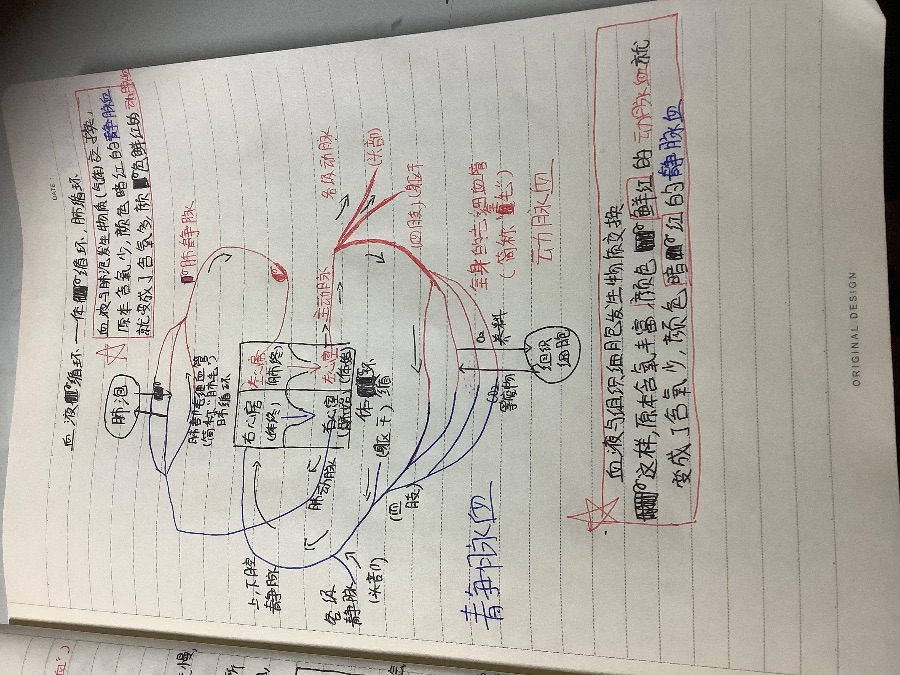 DATE
血液循环——体循环、肺循环
血液与肺泡发生物质(气体)交换,
原本含氧少,颜色暗红的静脉血
就变成了含氧多,颜色鲜红的动脉血
肺泡
肺静脉
肺部毛细血管
(简称"肺毛")
肺循环
左心房
(肺终)
右心房
(体终)
左心室
(体始)
右心室
主动脉
各级动脉
(头部)
(躯干)
(四肢)
肺动脉
体循环
上,下腔
静脉
各级
静脉
(头部)
(四
肢)
(躯干)
全身的毛细血管
(简称"毛")
动脉血
静脉血
O₂
养料
CO₂
等废物
组织
细胞
血液与组织细胞发生物质交换
这样,原本含氧丰富,颜色鲜红的动脉血就
变成了含氧少,颜色暗红的静脉血
ORIGINAL DESIGN
血")
慢,
所